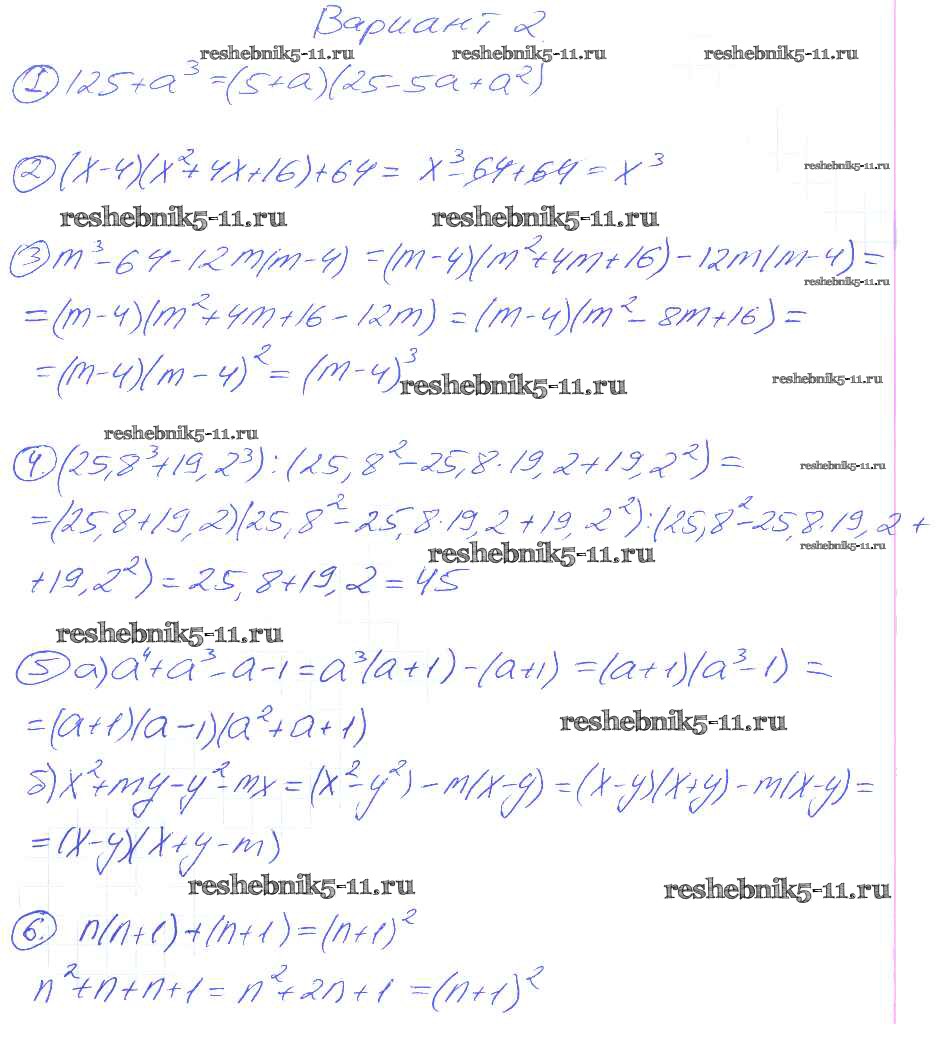 Вариант 2
reshebnik5-11.ru reshebnik5-11.ru reshebnik5-11.ru
① 125+a³=(5+a)(25-5a+a²)
② (x-4)(x²+4x+16)+64= x³-64+64=x³
reshebnik5-11.ru
reshebnik5-11.ru reshebnik5-11.ru
③ m³-64-12m(m-4)=(m-4)(m²+4m+16)-12m(m-4)=
reshebnik5-11.ru
=(m-4)(m²+4m+16-12m)=(m-4)(m²-8m+16)=
=(m-4)(m-4)²=(m-4)³
reshebnik5-11.ru reshebnik5-11.ru
reshebnik5-11.ru
④ (25,8³+19,2³):(25,8²-25,8·19,2+19,2²)=
reshebnik5-11.ru
=(25,8+19,2)(25,8²-25,8·19,2+19,2²):(25,8²-25,8·19,2+
reshebnik5-11.ru reshebnik5-11.ru
+19,2²)=25,8+19,2=45
reshebnik5-11.ru
⑤ а) a⁴+a³-a-1=a³(a+1)-(a+1)=(a+1)(a³-1)=
=(a+1)(a-1)(a²+a+1)
reshebnik5-11.ru
б) x²+my-y²-mx=(x²-y²)-m(x-y)=(x-y)(x+y)-m(x-y)=
=(x-y)(x+y-m)
reshebnik5-11.ru reshebnik5-11.ru
⑥. n(n+1)+(n+1)=(n+1)²
n²+n+n+1=n²+2n+1=(n+1)²